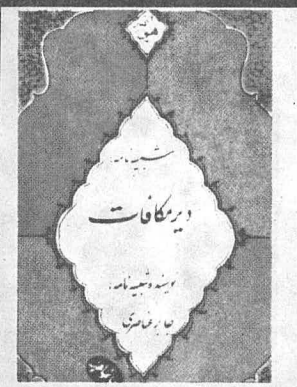 شبیه نامه
دیر مکافات
نویسنده شبیه نامه:
جابر عناصری